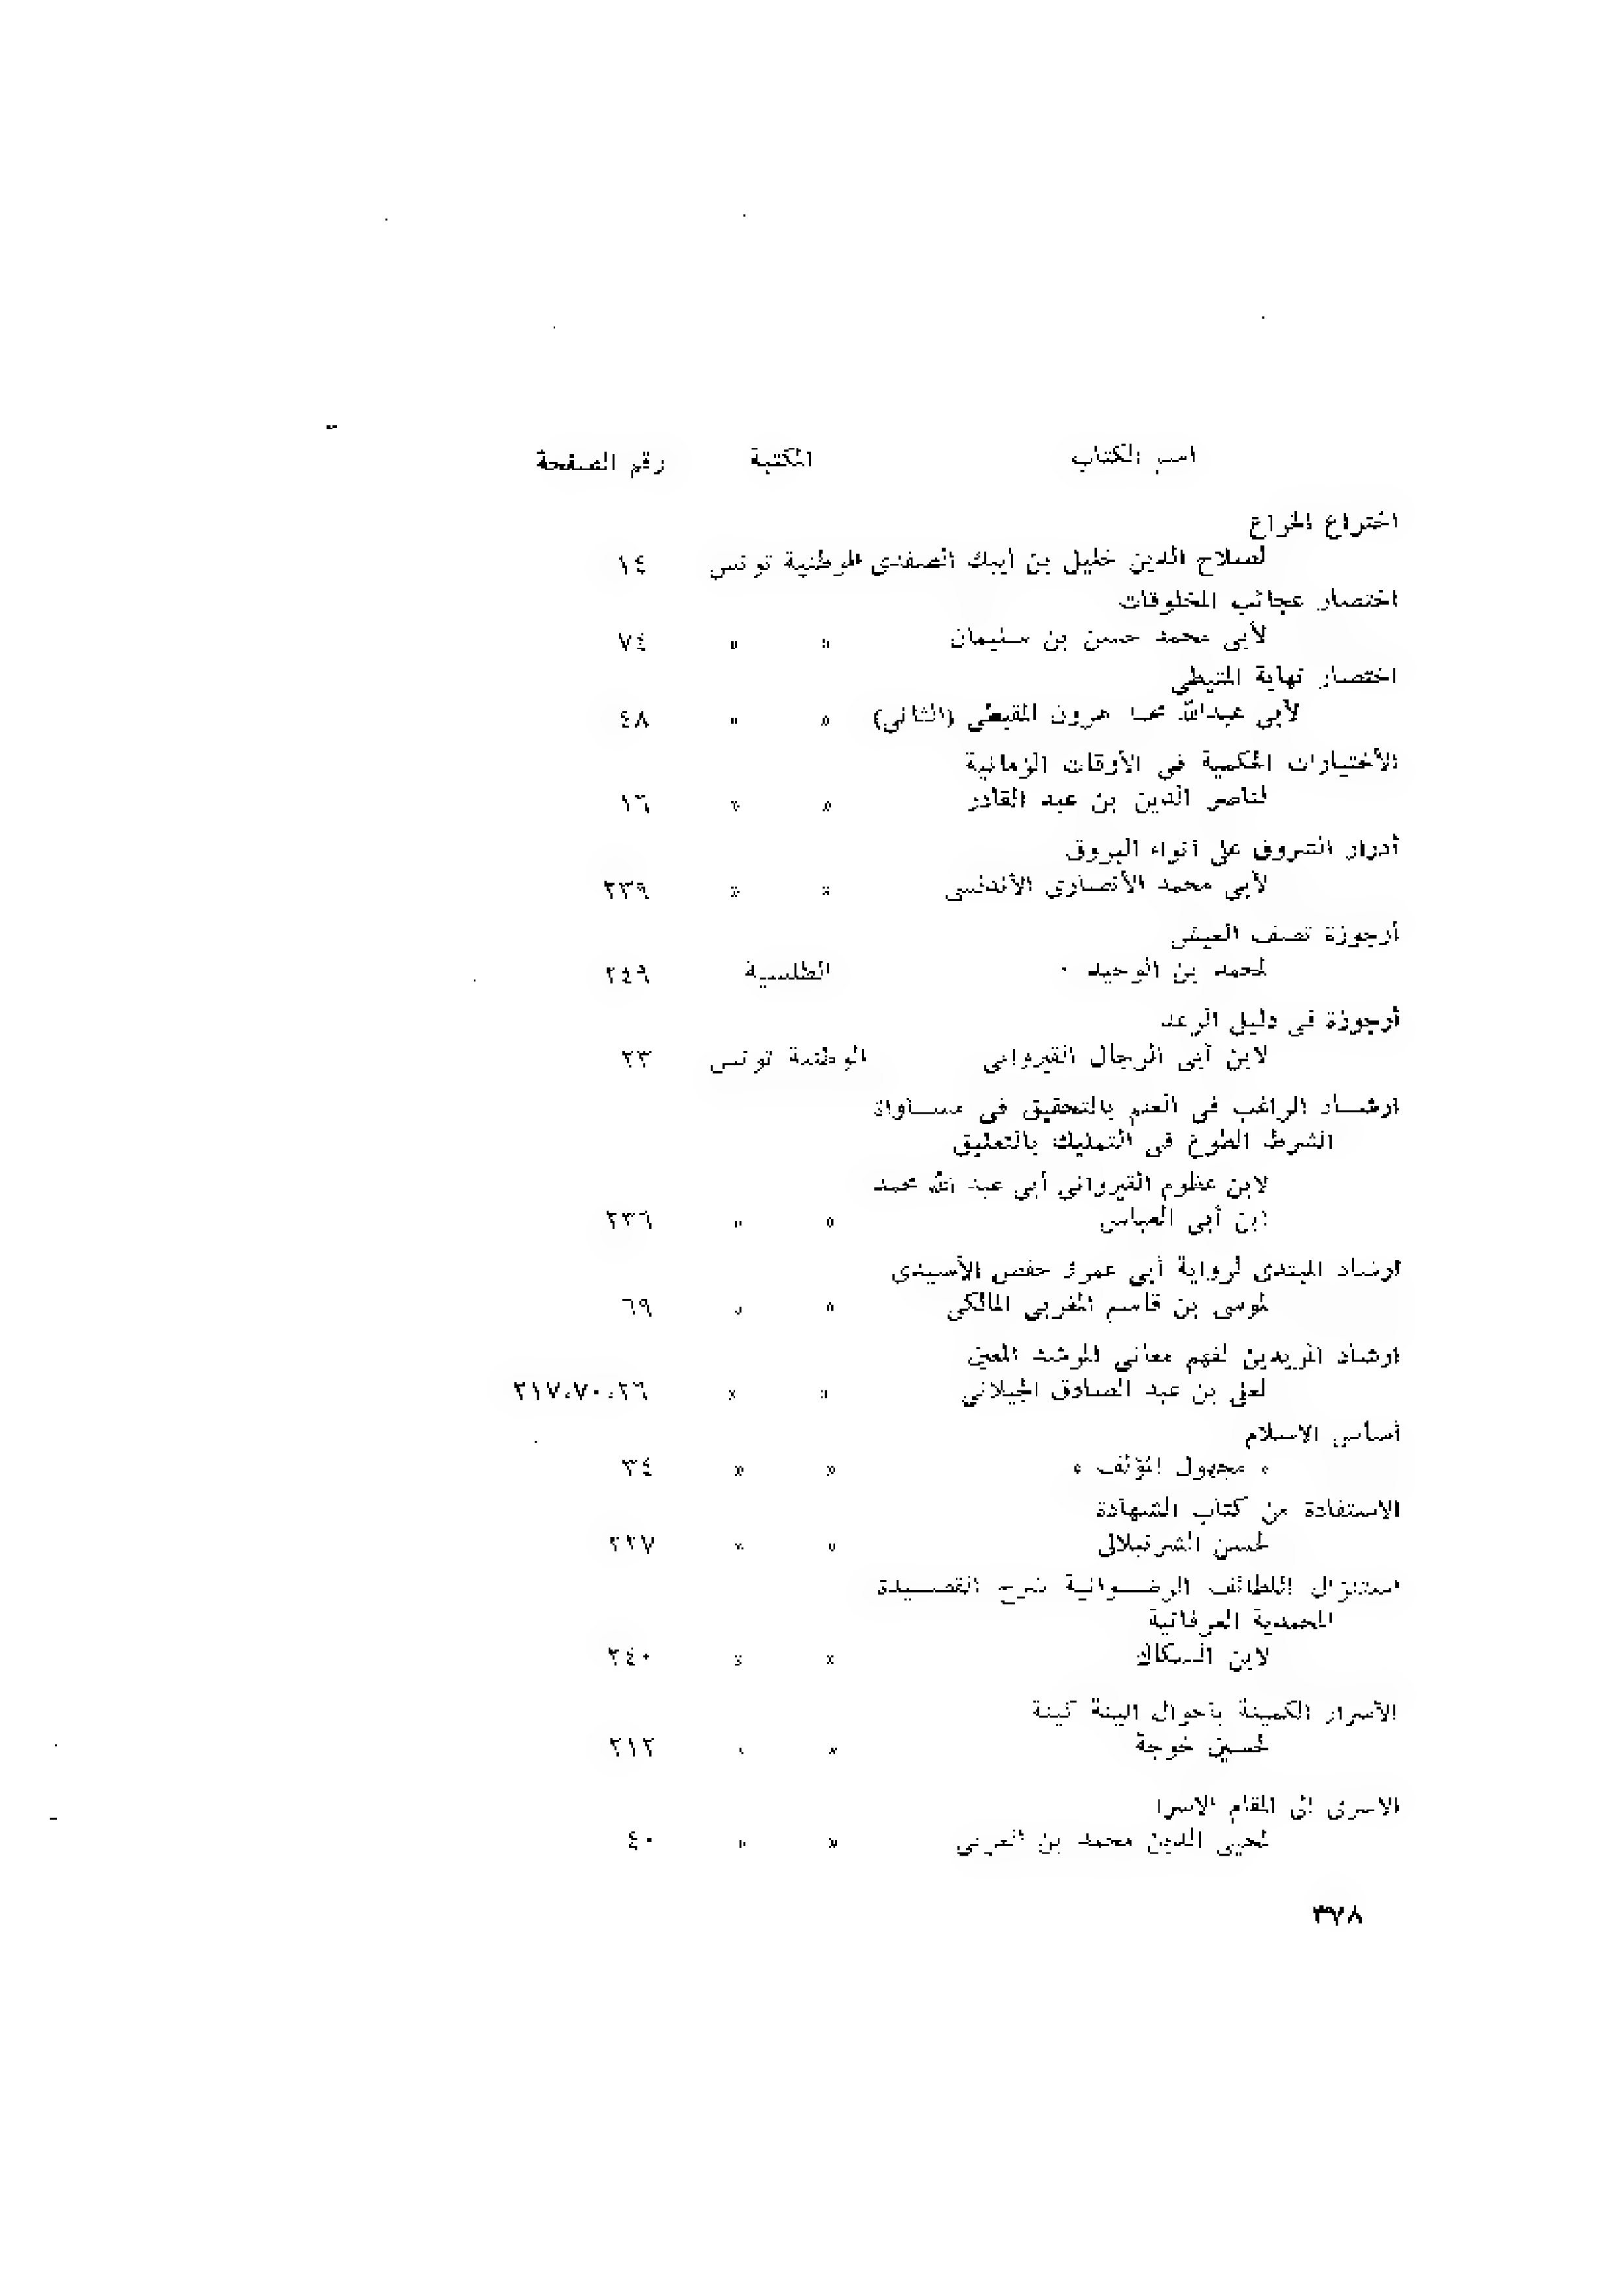 اسم الكتاب المكتبة رقم الصفحة
اختراع الخراع
لصلاح الدين خليل بن ايبك الصفدى الوطنية تونس ١٤
اختصار عجائب المخلوقات
لأبى محمد حسن بن سليمان » » ٧٤
اختصار نهاية المتيطى
لأبي عبدالله محمد هرون المقيطى (الثانى) » » ٤٨
الأختيارات الحكمية في الأوقات الزمانية
لناصر الدين بن عبد القادر » » ١٦
أدرار الشروق على أنواء البروق
لأبي محمد الأنصارى الأندلسى » » ٢٣٩
أرجوزة تصف العيش
لمحمد بن الوحيد الطلسية ٢٤٩
أرجوزة فى دليل الرعد
لابن أبى الرجال القيروانى الوطنية تونس ٢٣
ارشــاد الراغب فى العلم بالتحقيق فى مســاواة
الشرط الطوع فى التمليك بالتعليق
لابن عظوم القيروانى أبى عبد الله محمد
ابن أبى العباس » » ٢٣٦
ارشاد المبتدى لرواية أبى عمرو حفص الأسيدى
لموسى بن قاسم المغربى المالكى » » ٦٩
ارشاد المريدين لفهم معانى المرشد المعين
لعلى بن عبد الصادق الجيلانى » » ٢١٧،٧٠،٢٦
أساس الاسلام
« مجهول المؤلف » » » ٣٤
الاستفادة من كتاب الشهادة
لحسن الشرنبلالى » » ٢٢٧
استنزال اللطائف الرضــوانية شرح القصــيدة
المحمدية العرفانية
لابن السكاك » » ٢٤٠
الأسرار الكمينة بأحوال البينة كينة
لحسين خوجة » » ٢١٢
الاسرى الى المقام الاسرا
لمحيى الدين محمد بن العربى » » ٤٠
٣٧٨